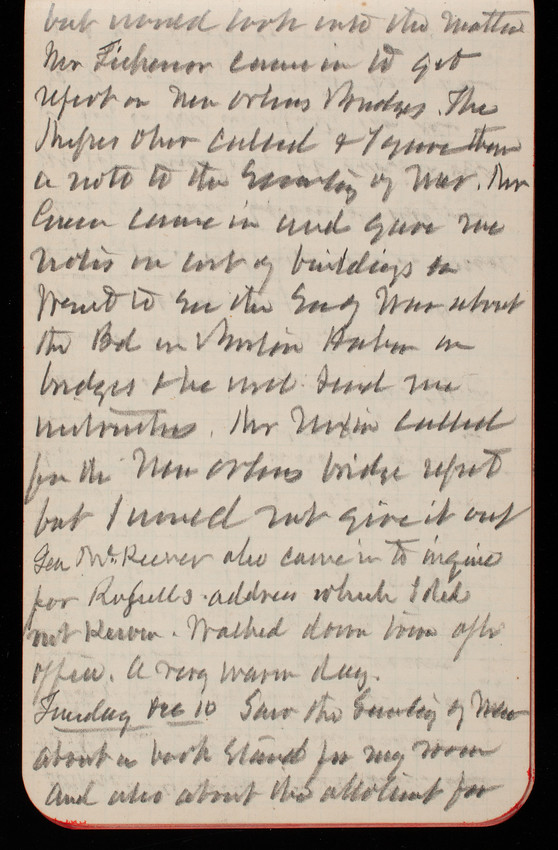 but would look into the matter
Mr Tichenor came in to get
report on New Orleans Bridges. The
called & I gave them
a note to the Secretary of War. Mr
Green came in and gave me
notes on cost of buildings
Went to see the Sec of War about
the Bd on Boston Harbor on
bridges & he will send me
instructions. Mr Nixon called
for the New Orleans bridge report
but I would not give it out
Gen McKeever also came in to inquire
for address which I did
not Known. Walked down town after
office. A very warm day.
Tuesday Dec 10 Saw the Secretary of War
about a book stand for my room
and also about the allotment for